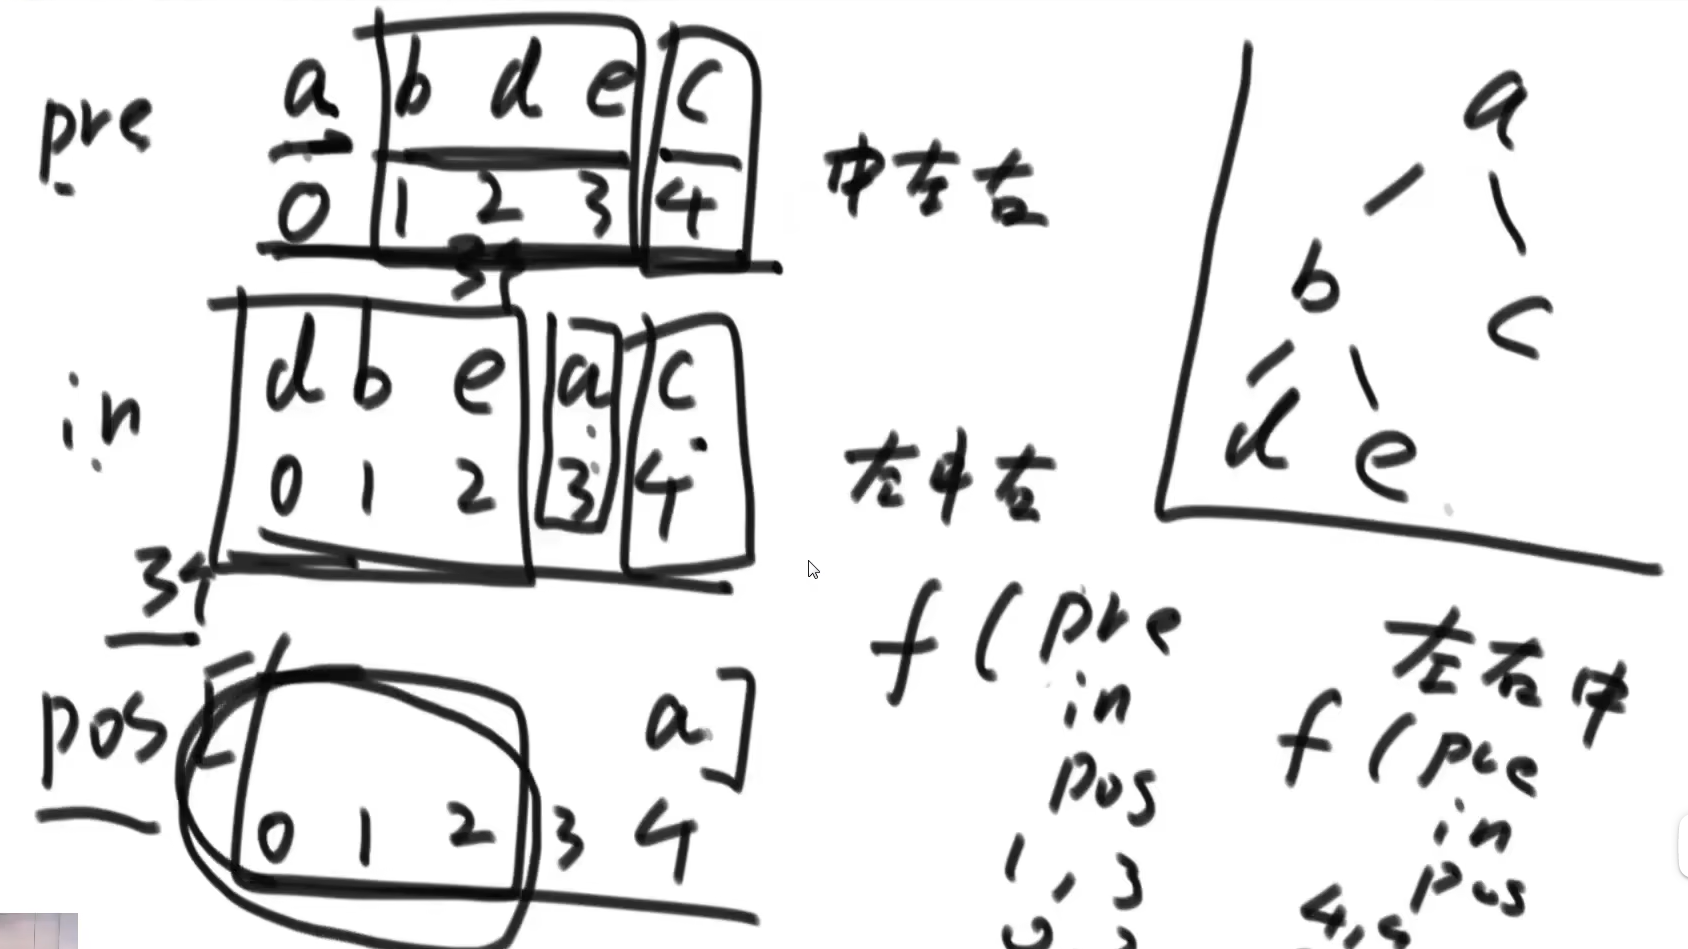 pre a b d e c
0 1 2 3 4
中左右
3个
in d b e a c
0 1 2 3 4
左中右
3个
pos [ a ]
0 1 2 3 4
a
b c
d e
f ( pre
in
pos
1 , 3
左右中
f ( pre
in
pos